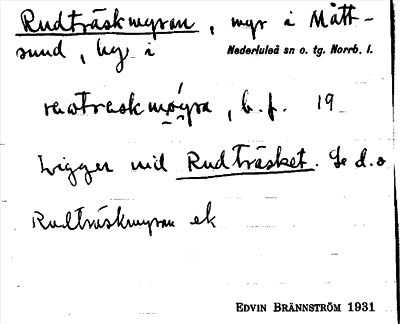 Rudträskmyran, myr i Mått-
sund, by i Nederluleå sn o. tg. Norrb. l.
b. f. 19
Ligger vid Rudträsket. Se d. o
Rudträskmyran ek
EDVIN BRÄNNSTRÖM 1931